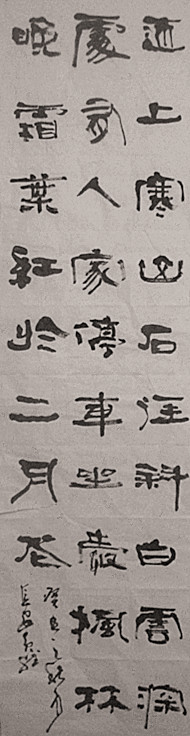 遠上寒山石徑斜白雲深
處有人家停車坐愛楓林
晚霜葉紅於二月花